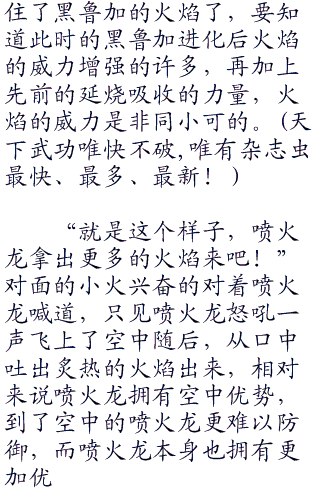 住了黑鲁加的火焰了，要知
道此时的黑鲁加进化后火焰
的威力增强的许多，再加上
先前的延烧吸收的力量，火
焰的威力是非同小可的。(天
下武功唯快不破,唯有杂志虫
最快、最多、最新！)
“就是这个样子，喷火
龙拿出更多的火焰来吧！”
对面的小火兴奋的对着喷火
龙喊道，只见喷火龙怒吼一
声飞上了空中随后，从口中
吐出炙热的火焰出来，相对
来说喷火龙拥有空中优势，
到了空中的喷火龙更难以防
御，而喷火龙本身也拥有更
加优